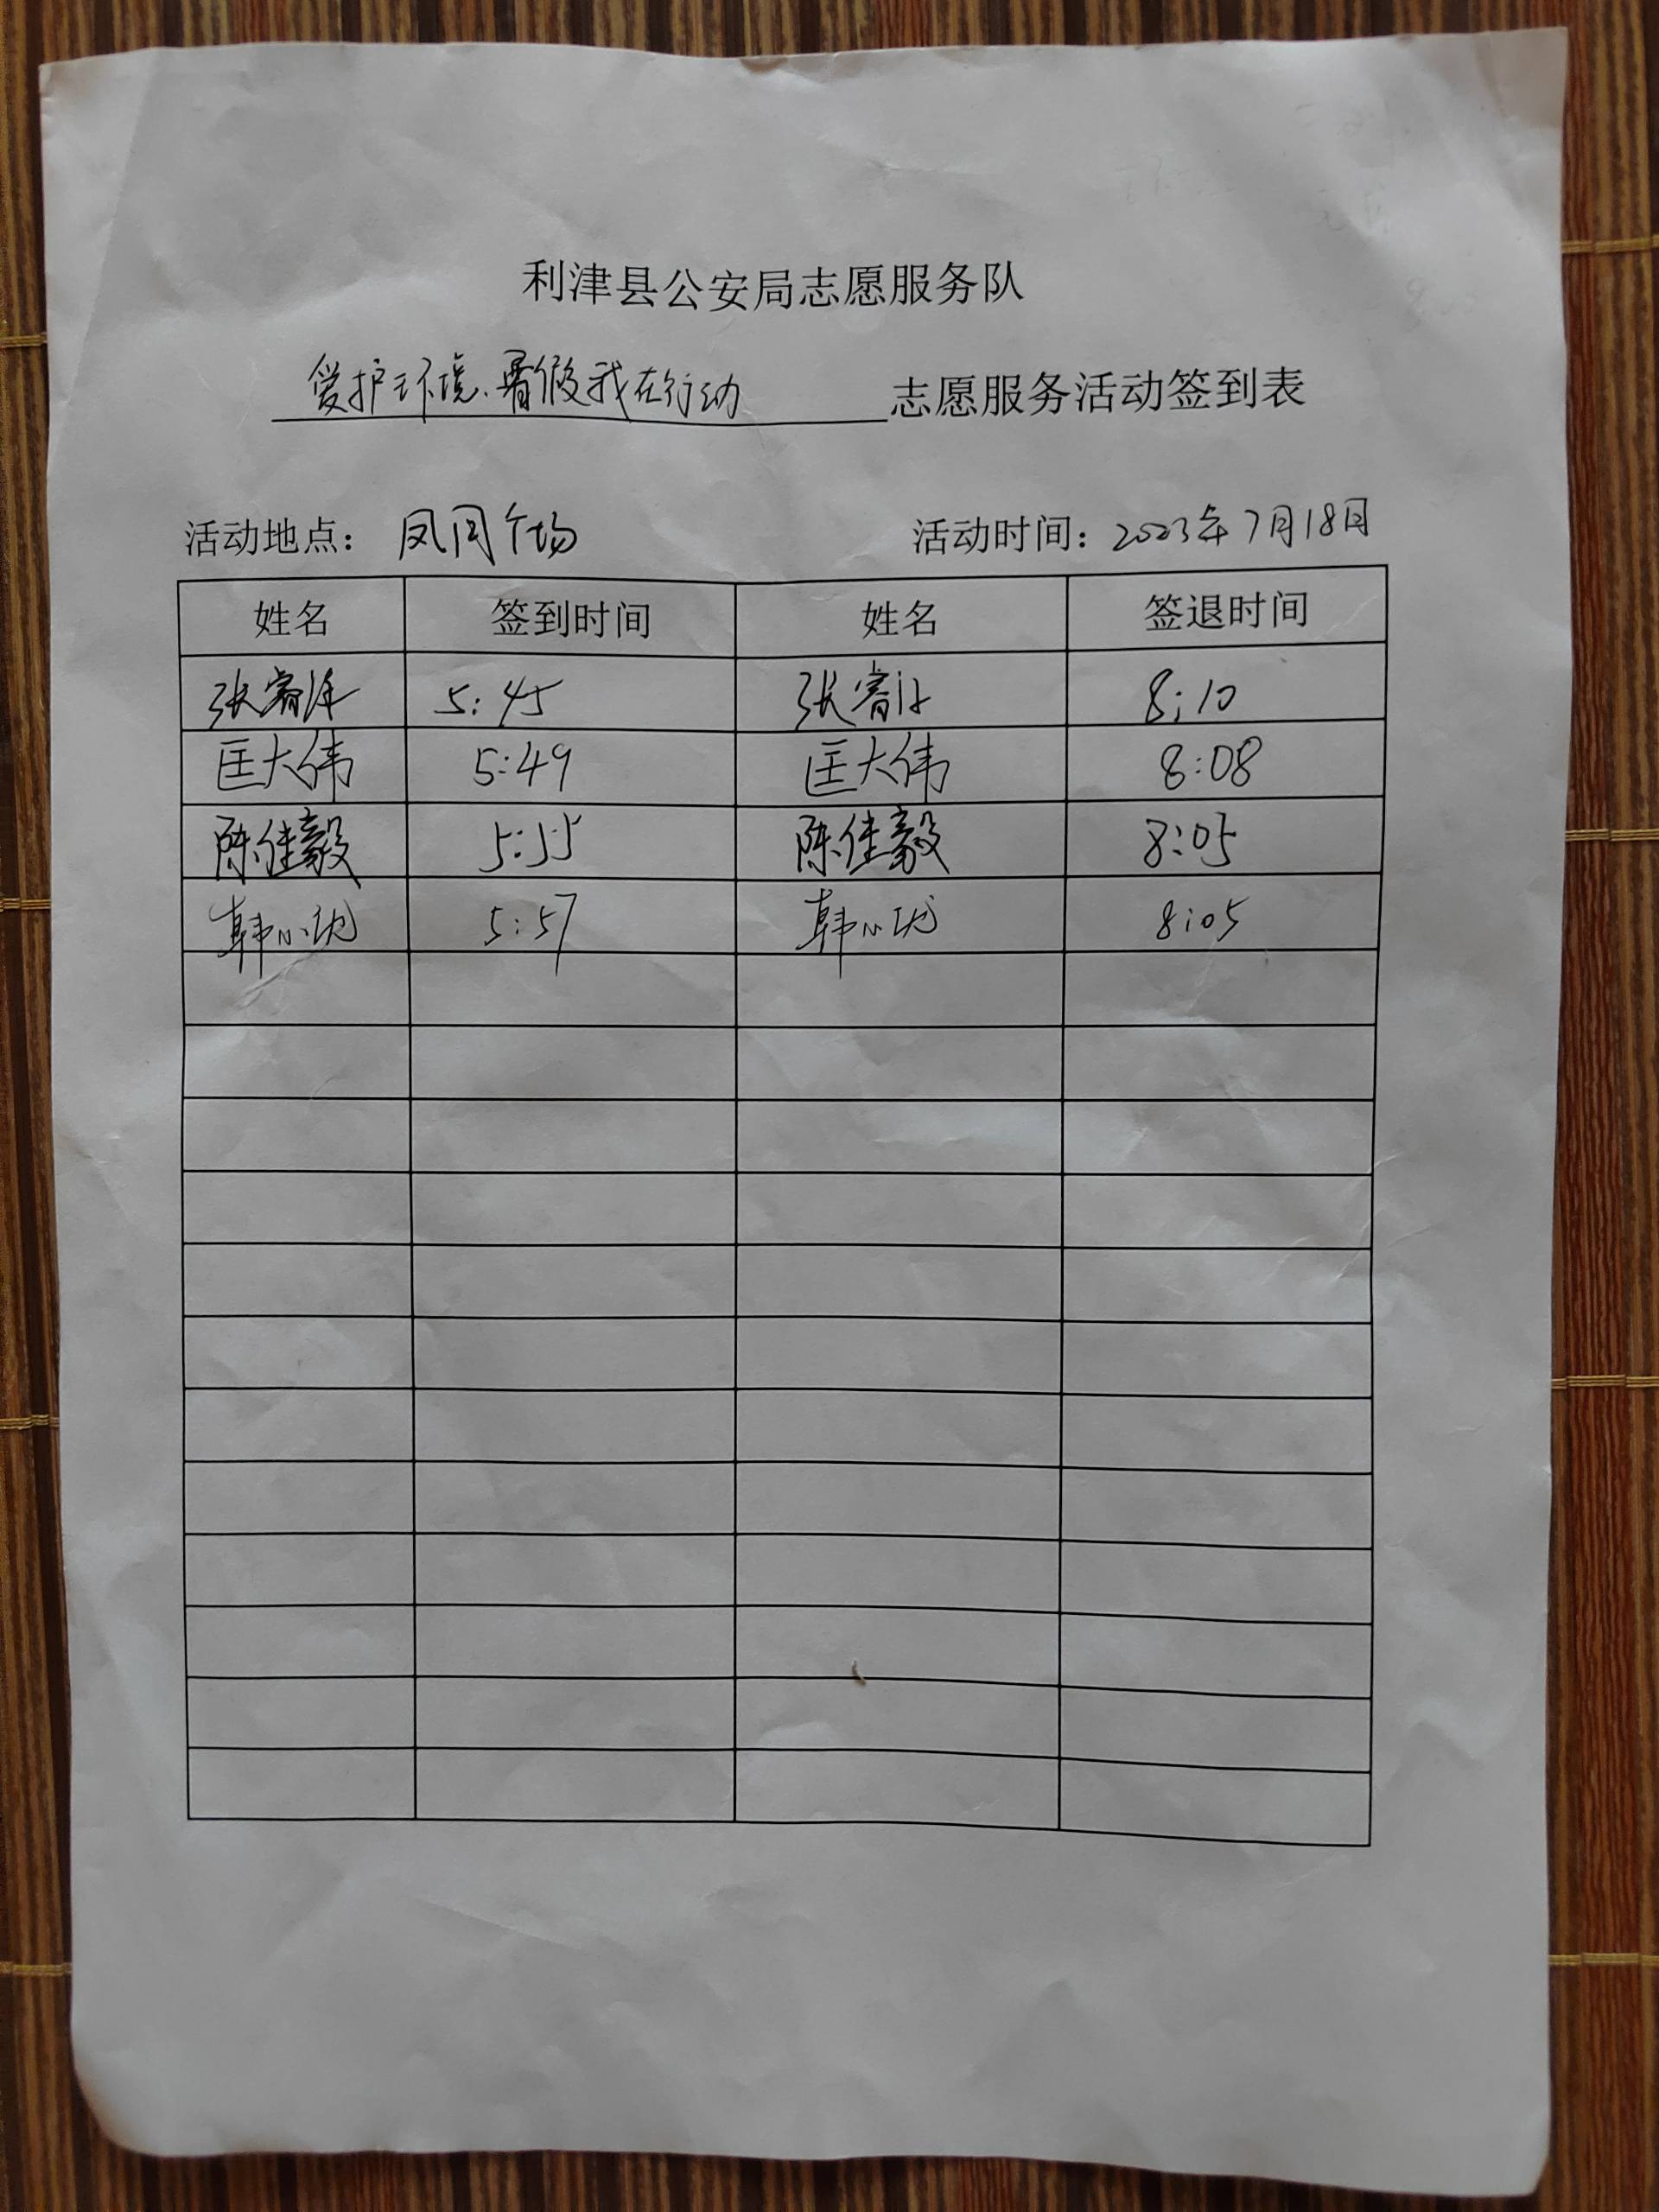 利津县公安局志愿服务队
爱护环境、暑假我在行动 志愿服务活动签到表
活动地点： 凤凰广场 活动时间：2023年7月18日
姓名 签到时间 姓名 签退时间
张睿泽 5:45 张睿泽 8:10
匡大伟 5:49 匡大伟 8:08
陈佳毅 5:55 陈佳毅 8:05
韩 5:57 韩 8:05